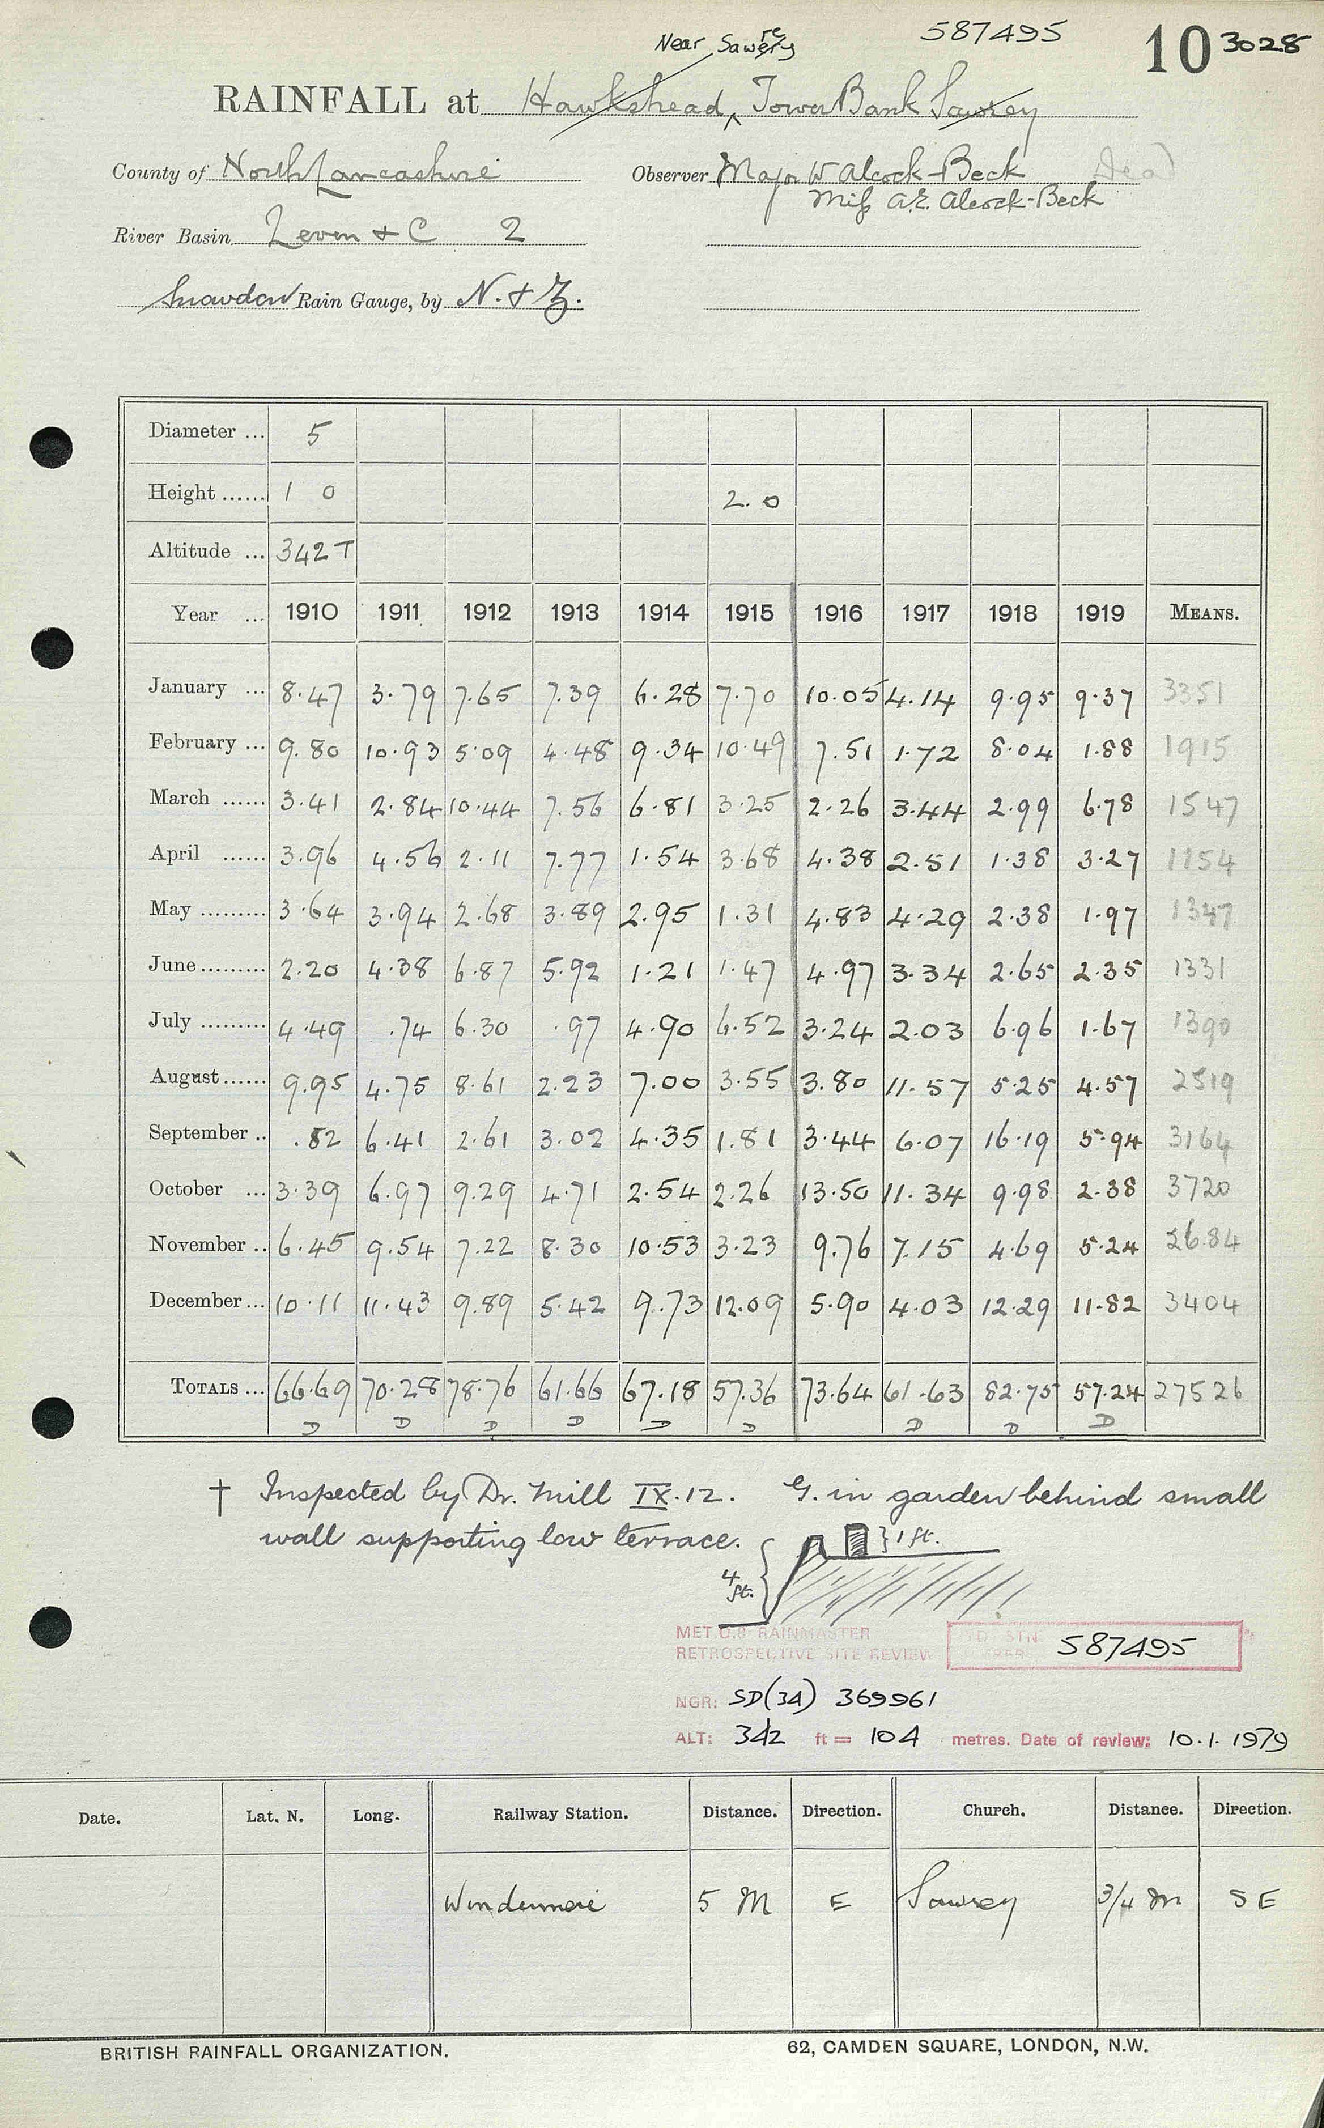 Near Sawrey 587495 10 3028
RAINFALL at Hawkshead, Tower Bank Sawrey
County of North Lancashire Observer Major W Alcock-Beck Dead
Miss A.E. Alcock-Beck
River Basin Leven & C 2
Snowdon Rain Gauge, by N. & Z.
Diameter ... 5
Height ...... 1 0 2.0
Altitude ... 342 T
Year ... 1910 1911 1912 1913 1914 1915 1916 1917 1918 1919 MEANS.
January ... 8.47 3.79 7.65 7.39 6.28 7.70 10.05 4.14 9.95 9.37 3351
February ... 9.80 10.93 5.09 4.48 9.34 10.49 7.51 1.72 8.04 1.88 1915
March ...... 3.41 2.84 10.44 7.56 6.81 3.25 2.26 3.44 2.99 6.78 1547
April ...... 3.96 4.56 2.11 7.77 1.54 3.68 4.38 2.51 1.38 3.27 1154
May ......... 3.64 3.94 2.68 3.89 2.95 1.31 4.83 4.29 2.38 1.97 1347
June ......... 2.20 4.38 6.87 5.92 1.21 1.47 4.97 3.34 2.65 2.35 1331
July ......... 4.49 .74 6.30 .97 4.90 6.52 3.24 2.03 6.96 1.67 1390
August ...... 9.95 4.75 8.61 2.23 7.00 3.55 3.80 11.57 5.25 4.57 2519
September .. .82 6.41 2.61 3.02 4.35 1.81 3.44 6.07 16.19 5.94 3164
October ... 3.39 6.97 9.29 4.71 2.54 2.26 13.50 11.34 9.98 2.38 3720
November .. 6.45 9.54 7.22 8.30 10.53 3.23 9.76 7.15 4.69 5.24 26.84
December ... 10.11 11.43 9.89 5.42 9.73 12.09 5.90 4.03 12.29 11.82 3404
TOTALS ... 66.69 70.28 78.76 61.66 67.18 57.36 73.64 61.63 82.75 57.24 27526
D D D D D D D D D
† Inspected by Dr. Mill IX.12. G. in garden behind small
wall supporting low terrace. 1 ft.
4 ft.
MET O.8 RAINMASTER
RETROSPECTIVE SITE REVIEW 587495
NGR: SD(34) 369961
ALT: 342 ft = 104 metres. Date of review: 10.1.1979
Date. Lat. N. Long. Railway Station. Distance. Direction. Church. Distance. Direction.
Windermere 5 M E Sawrey 3/4 m SE
BRITISH RAINFALL ORGANIZATION. 62, CAMDEN SQUARE, LONDON, N.W.